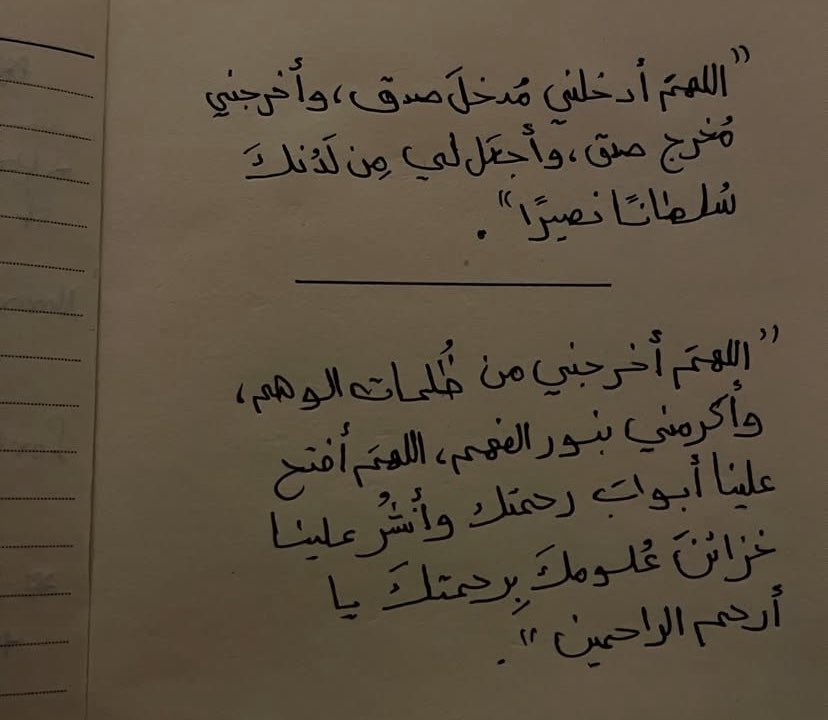 "اللهمَ أدخلني مُدخلَ صدق، وأخرجني
مُخرج صدق، وأجعَل لي مِن لَدُنكَ
سُلطانًا نصيرًا".
"اللهمَ أخرجني من ظُلمات الوهم،
وأكرمني بنور الفهم، اللهمَ أفتح
علينا أبواب رحمتك وأنشُر علينا
خزائنَ عُلومكَ بِرحمتكَ يا
أرحم الراحمين".